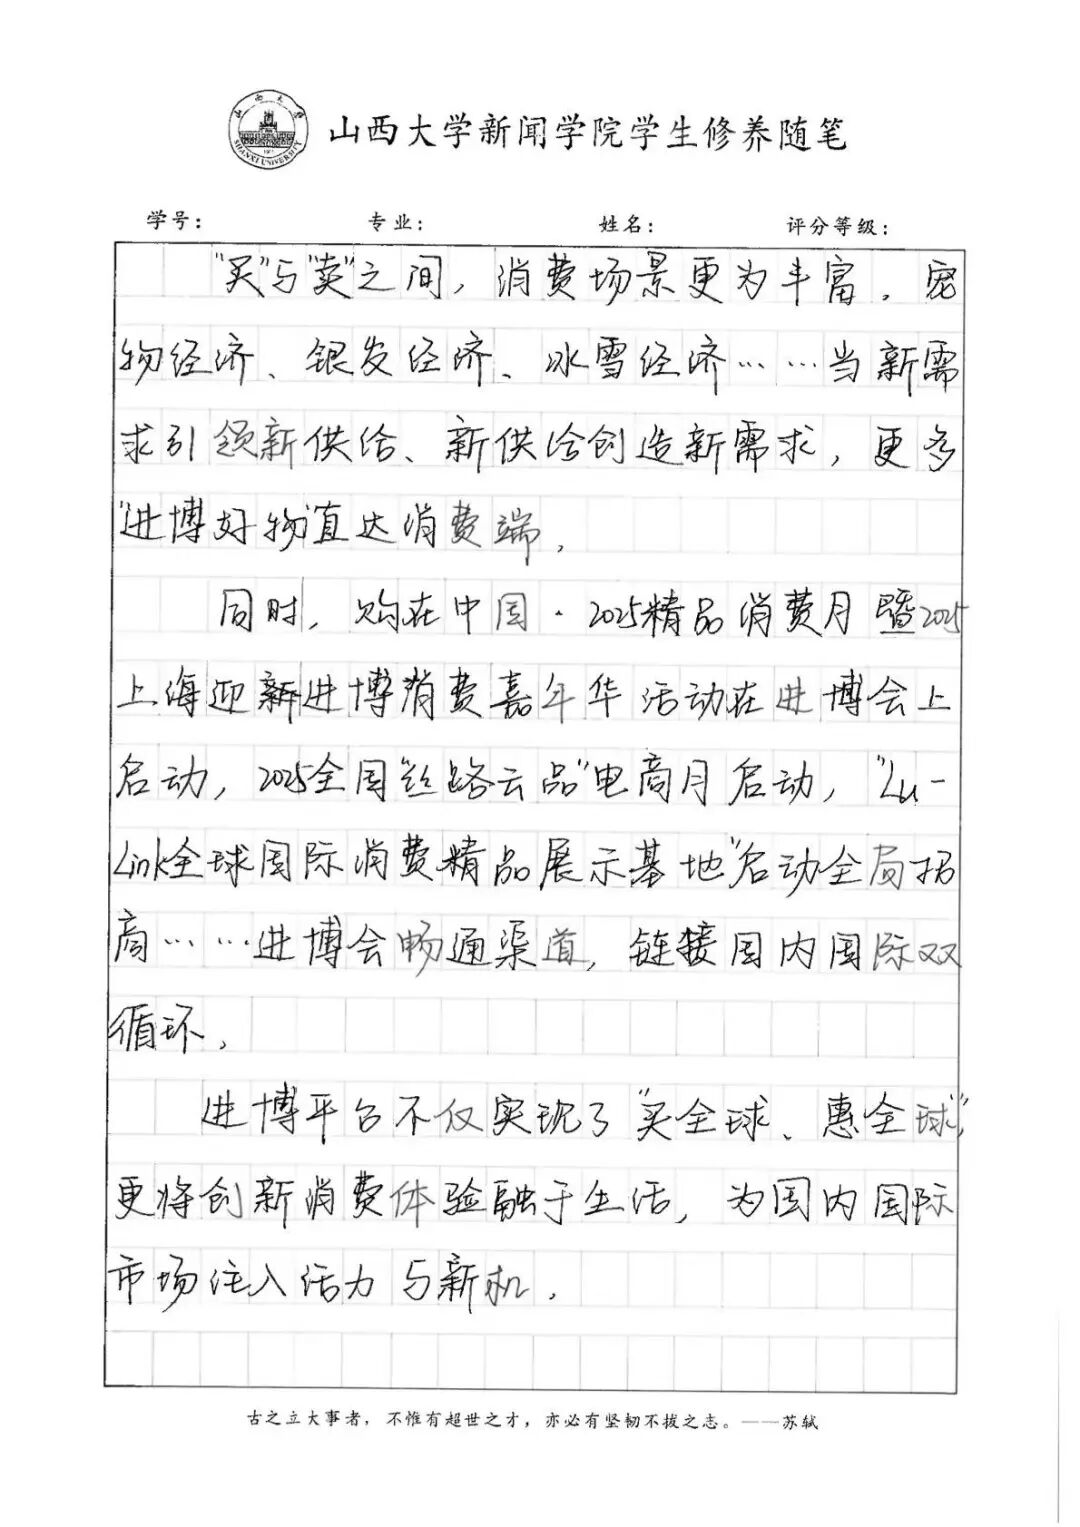 山西大学新闻学院学生修养随笔
学号: 专业: 姓名: 评分等级:
"买"与"卖"之间,消费场景更为丰富.宠
物经济、银发经济、冰雪经济……当新需
求引领新供给、新供给创造新需求,更多
"进博好物"直达消费端.
同时,购在中国·2025精品消费月暨2025
上海迎新进博消费嘉年华活动在进博会上
启动,2025全国"丝路云品"电商月启动,"Lu-
Link全球国际消费精品展示基地"启动全局招
商……进博会畅通渠道,链接国内国际双
循环.
进博平台不仅实现了"买全球、惠全球",
更将创新消费体验融于生活,为国内国际
市场注入活力与新机.
古之立大事者,不惟有超世之才,亦必有坚韧不拔之志。——苏轼